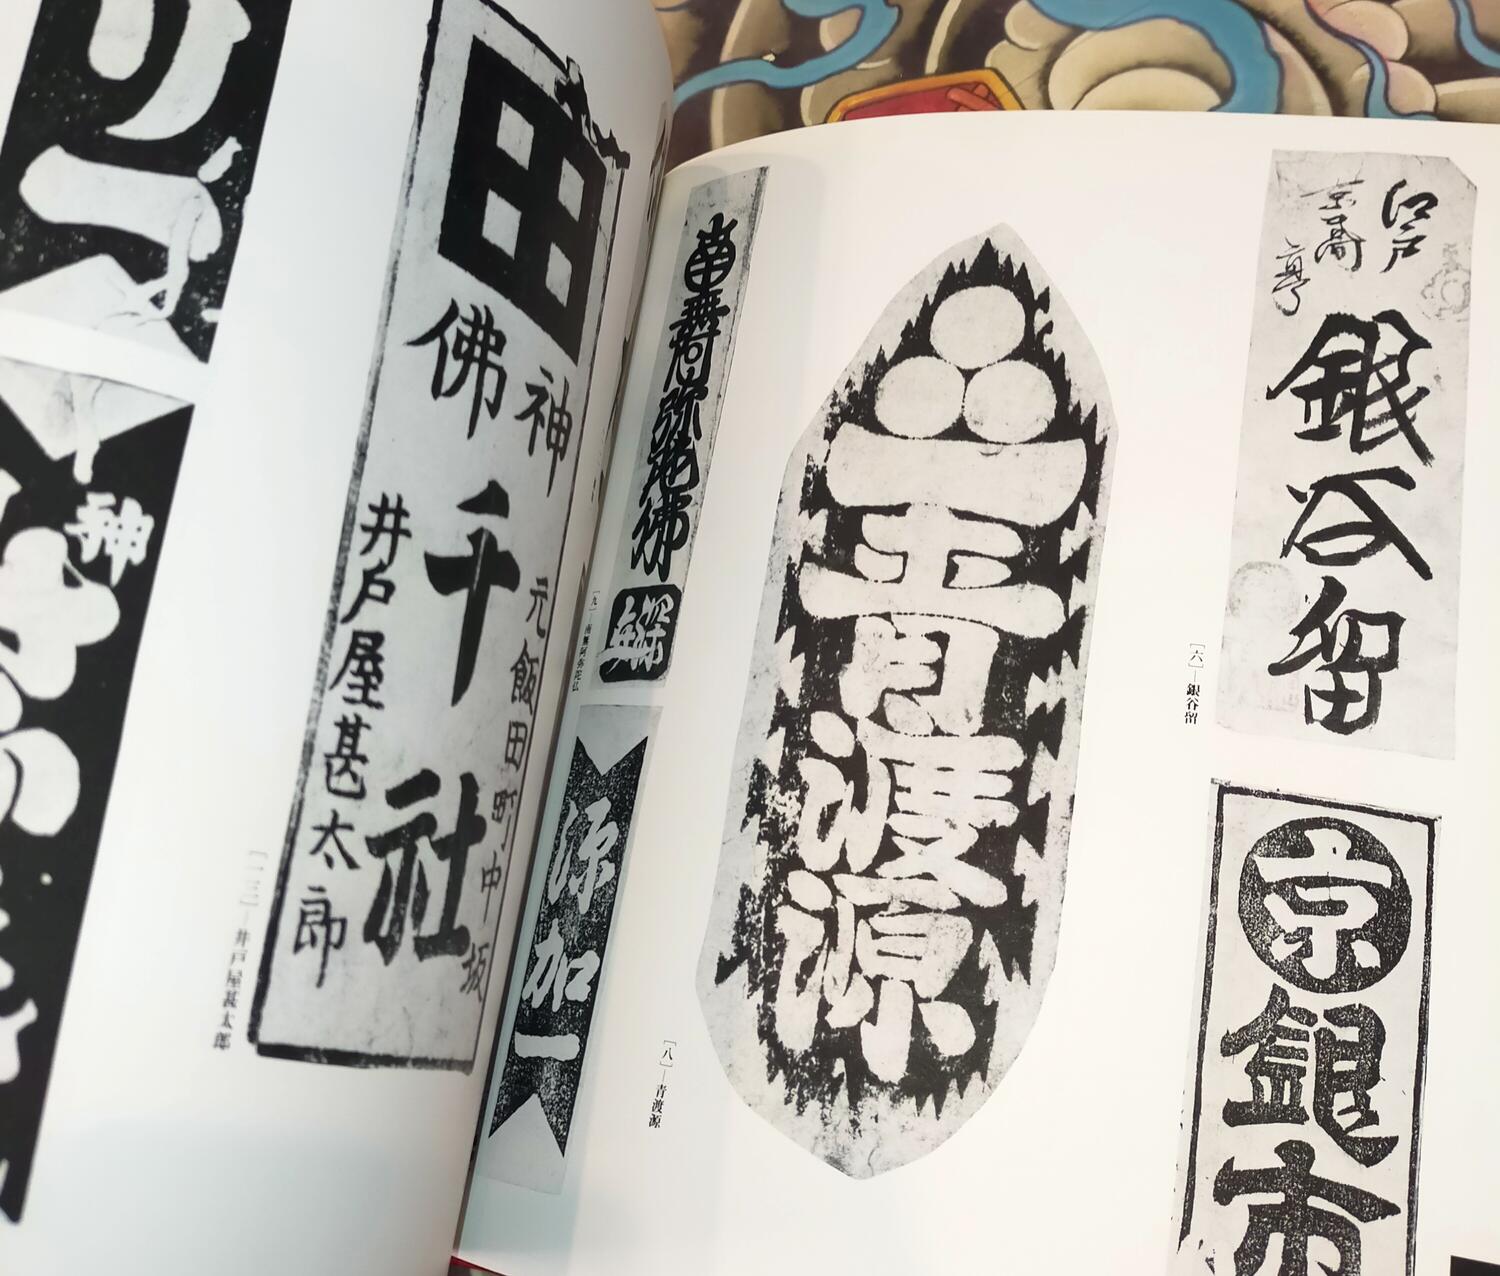 江戸
京高亭
銀谷留
[六]—銀谷留
京
銀市
青渡源
[八]—青渡源
南無阿弥陀佛
[九]—南無阿弥陀仏
源加一
神
佛
千社
元飯田町中坂
井戸屋甚太郎
[一三]—井戸屋甚太郎
神